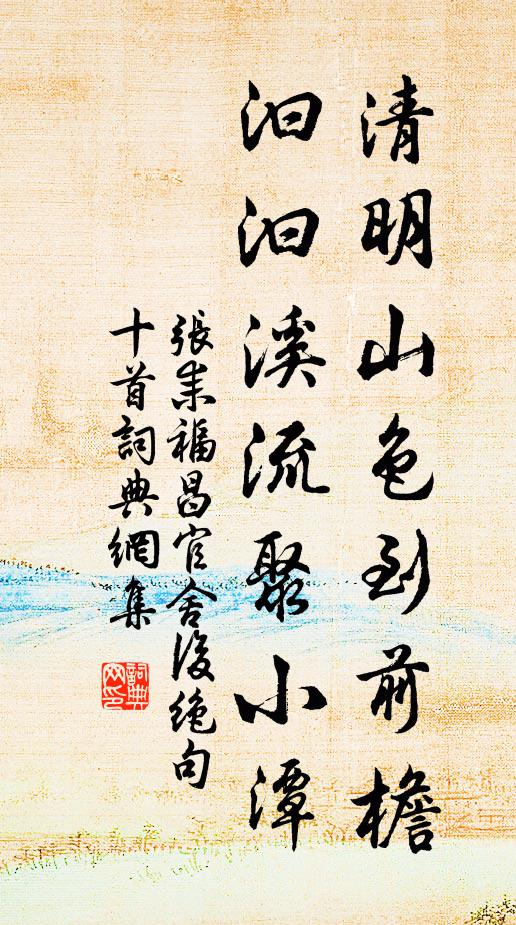 清明山色到前檐
汩汩溪流聚小潭
張耒福昌官舍後絕句
十首詞典網集
詞典网印